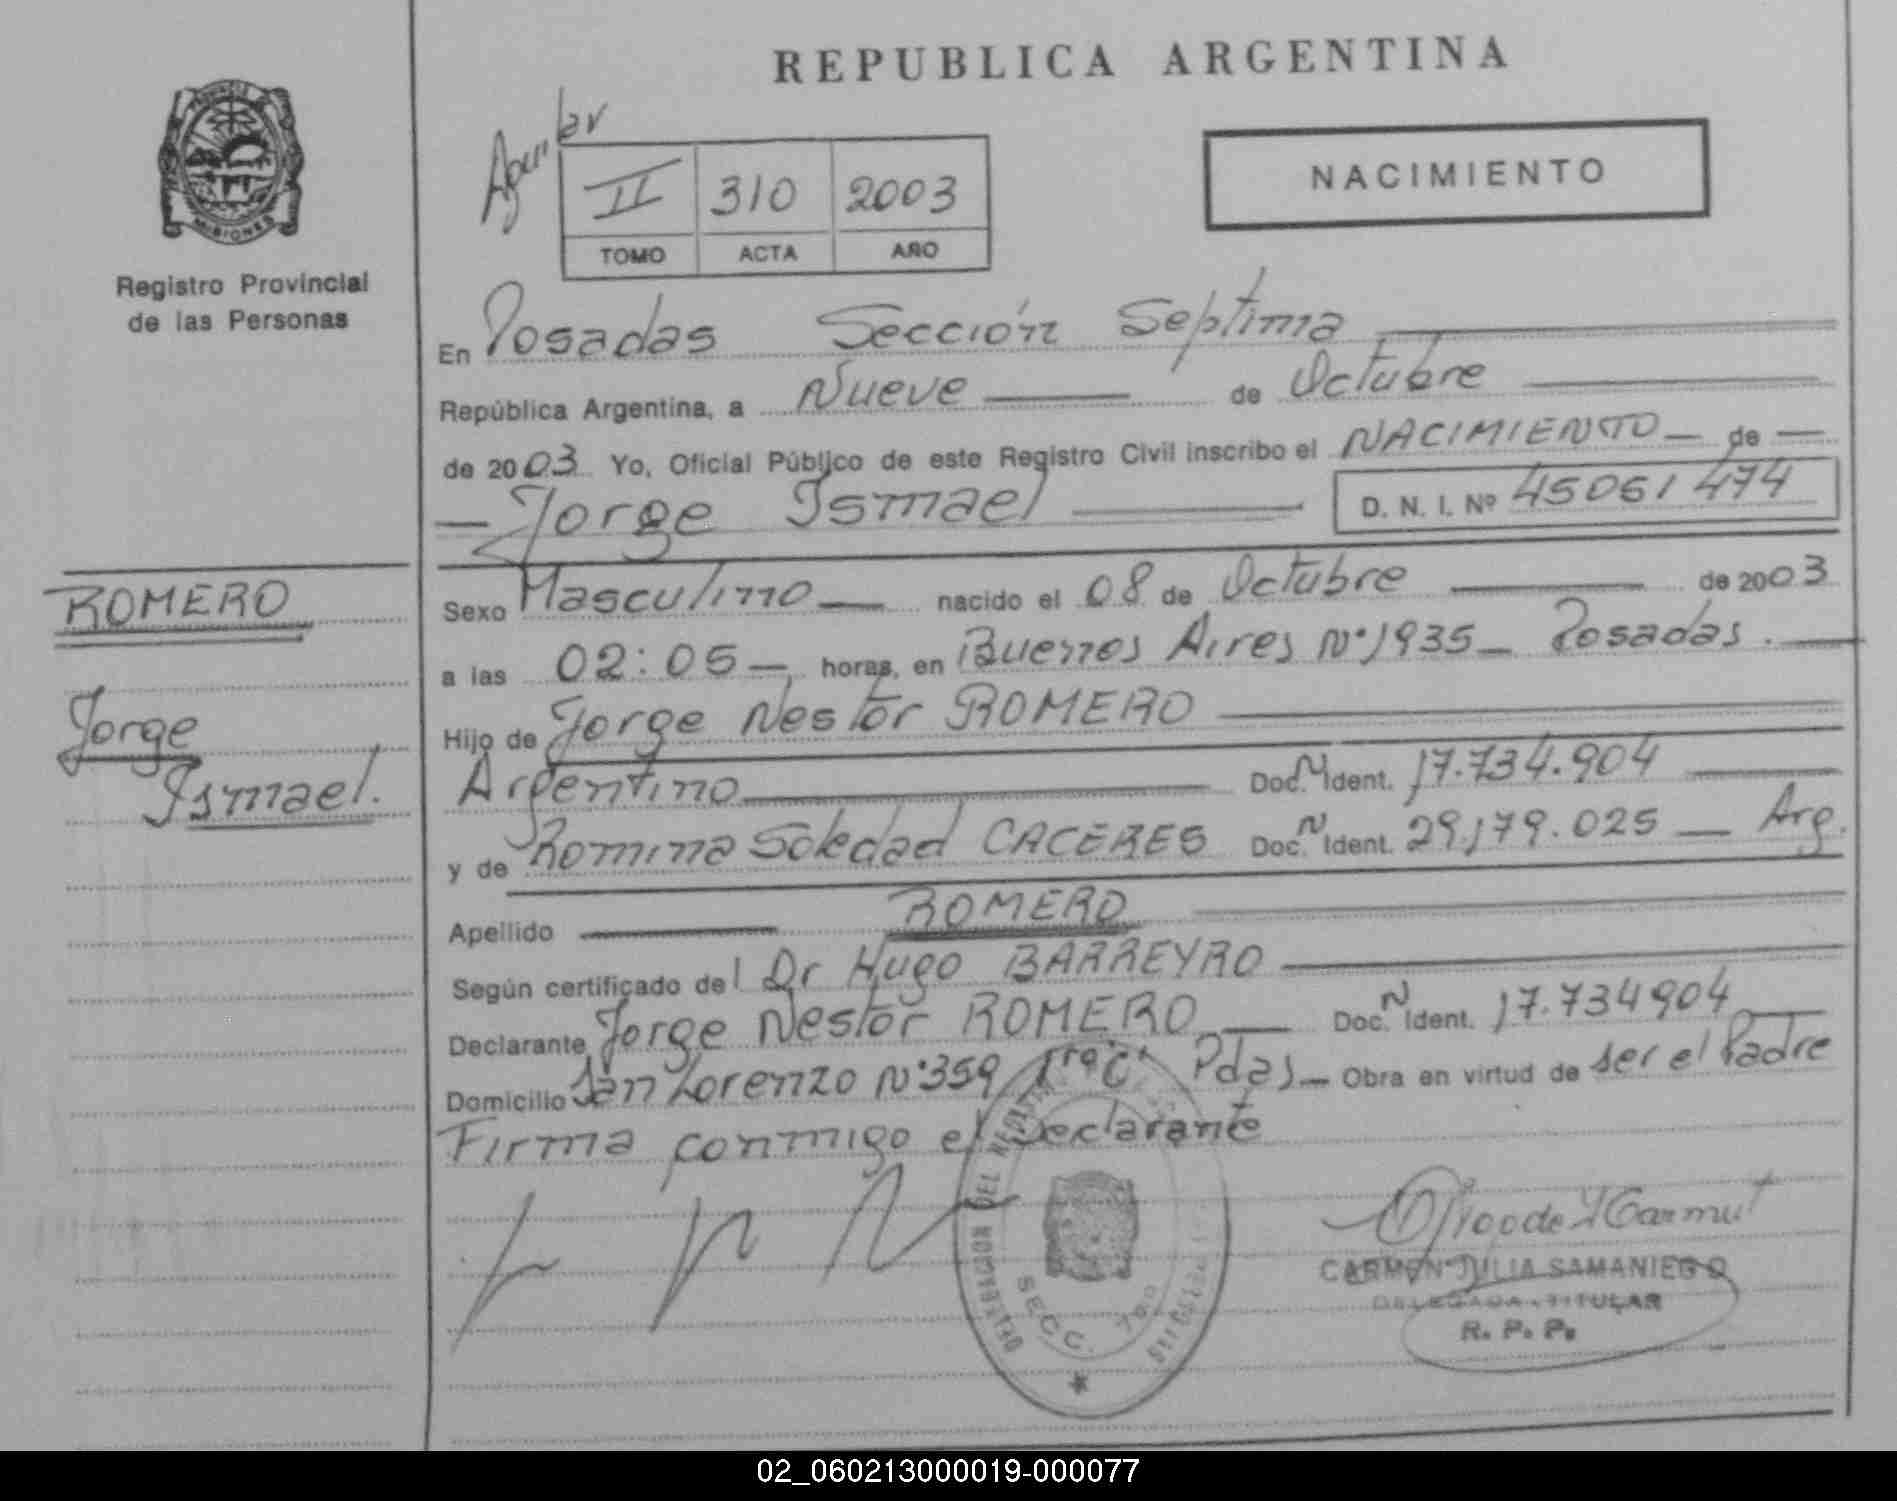 REPUBLICA ARGENTINA
PROVINCIA DE
MISIONES
Registro Provincial
de las Personas
NACIMIENTO
II 310 2003
TOMO ACTA AÑO
En Posadas Sección Septima
República Argentina, a Nueve de Octubre
de 2003 Yo, Oficial Público de este Registro Civil inscribo el NACIMIENTO de
Jorge Ismael D. N. I. Nº 45051474
ROMERO
Jorge
Ismael.
Sexo Masculino nacido el 08 de Octubre de 2003
a las 02:05 horas, en Buenos Aires Nº 1935 Posadas.
Hijo de Jorge Nestor ROMERO
Argentino Doc. N Ident. 17.734.904
y de Romina Soledad CACERES Doc. N Ident. 29.179.025 Arg.
Apellido ROMERO
Según certificado del Dr Hugo BARREYRO
Declarante Jorge Nestor ROMERO Doc. N Ident. 17.734904
Domicilio San Lorenzo Nº 359 Pdas Obra en virtud de ser el Padre
Firma conmigo el Declarante
DELEGACION DEL
SECC.
CARMEN JULIA SAMANIEGO
DELEGADA TITULAR
R. P. P.
02_060213000019-000077